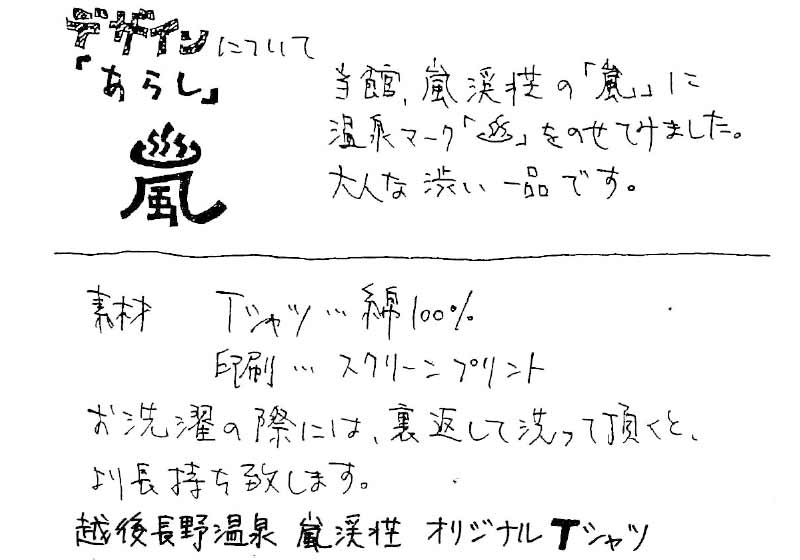 デザインについて
「あらし」
嵐
当館、嵐渓荘の「嵐」に
温泉マーク「♨」をのせてみました。
大人な渋い一品です。
素材 Tシャツ…綿100%
印刷…スクリーンプリント
お洗濯の際には、裏返して洗って頂くと、
より長持ち致します。
越後長野温泉 嵐渓荘 オリジナルTシャツ